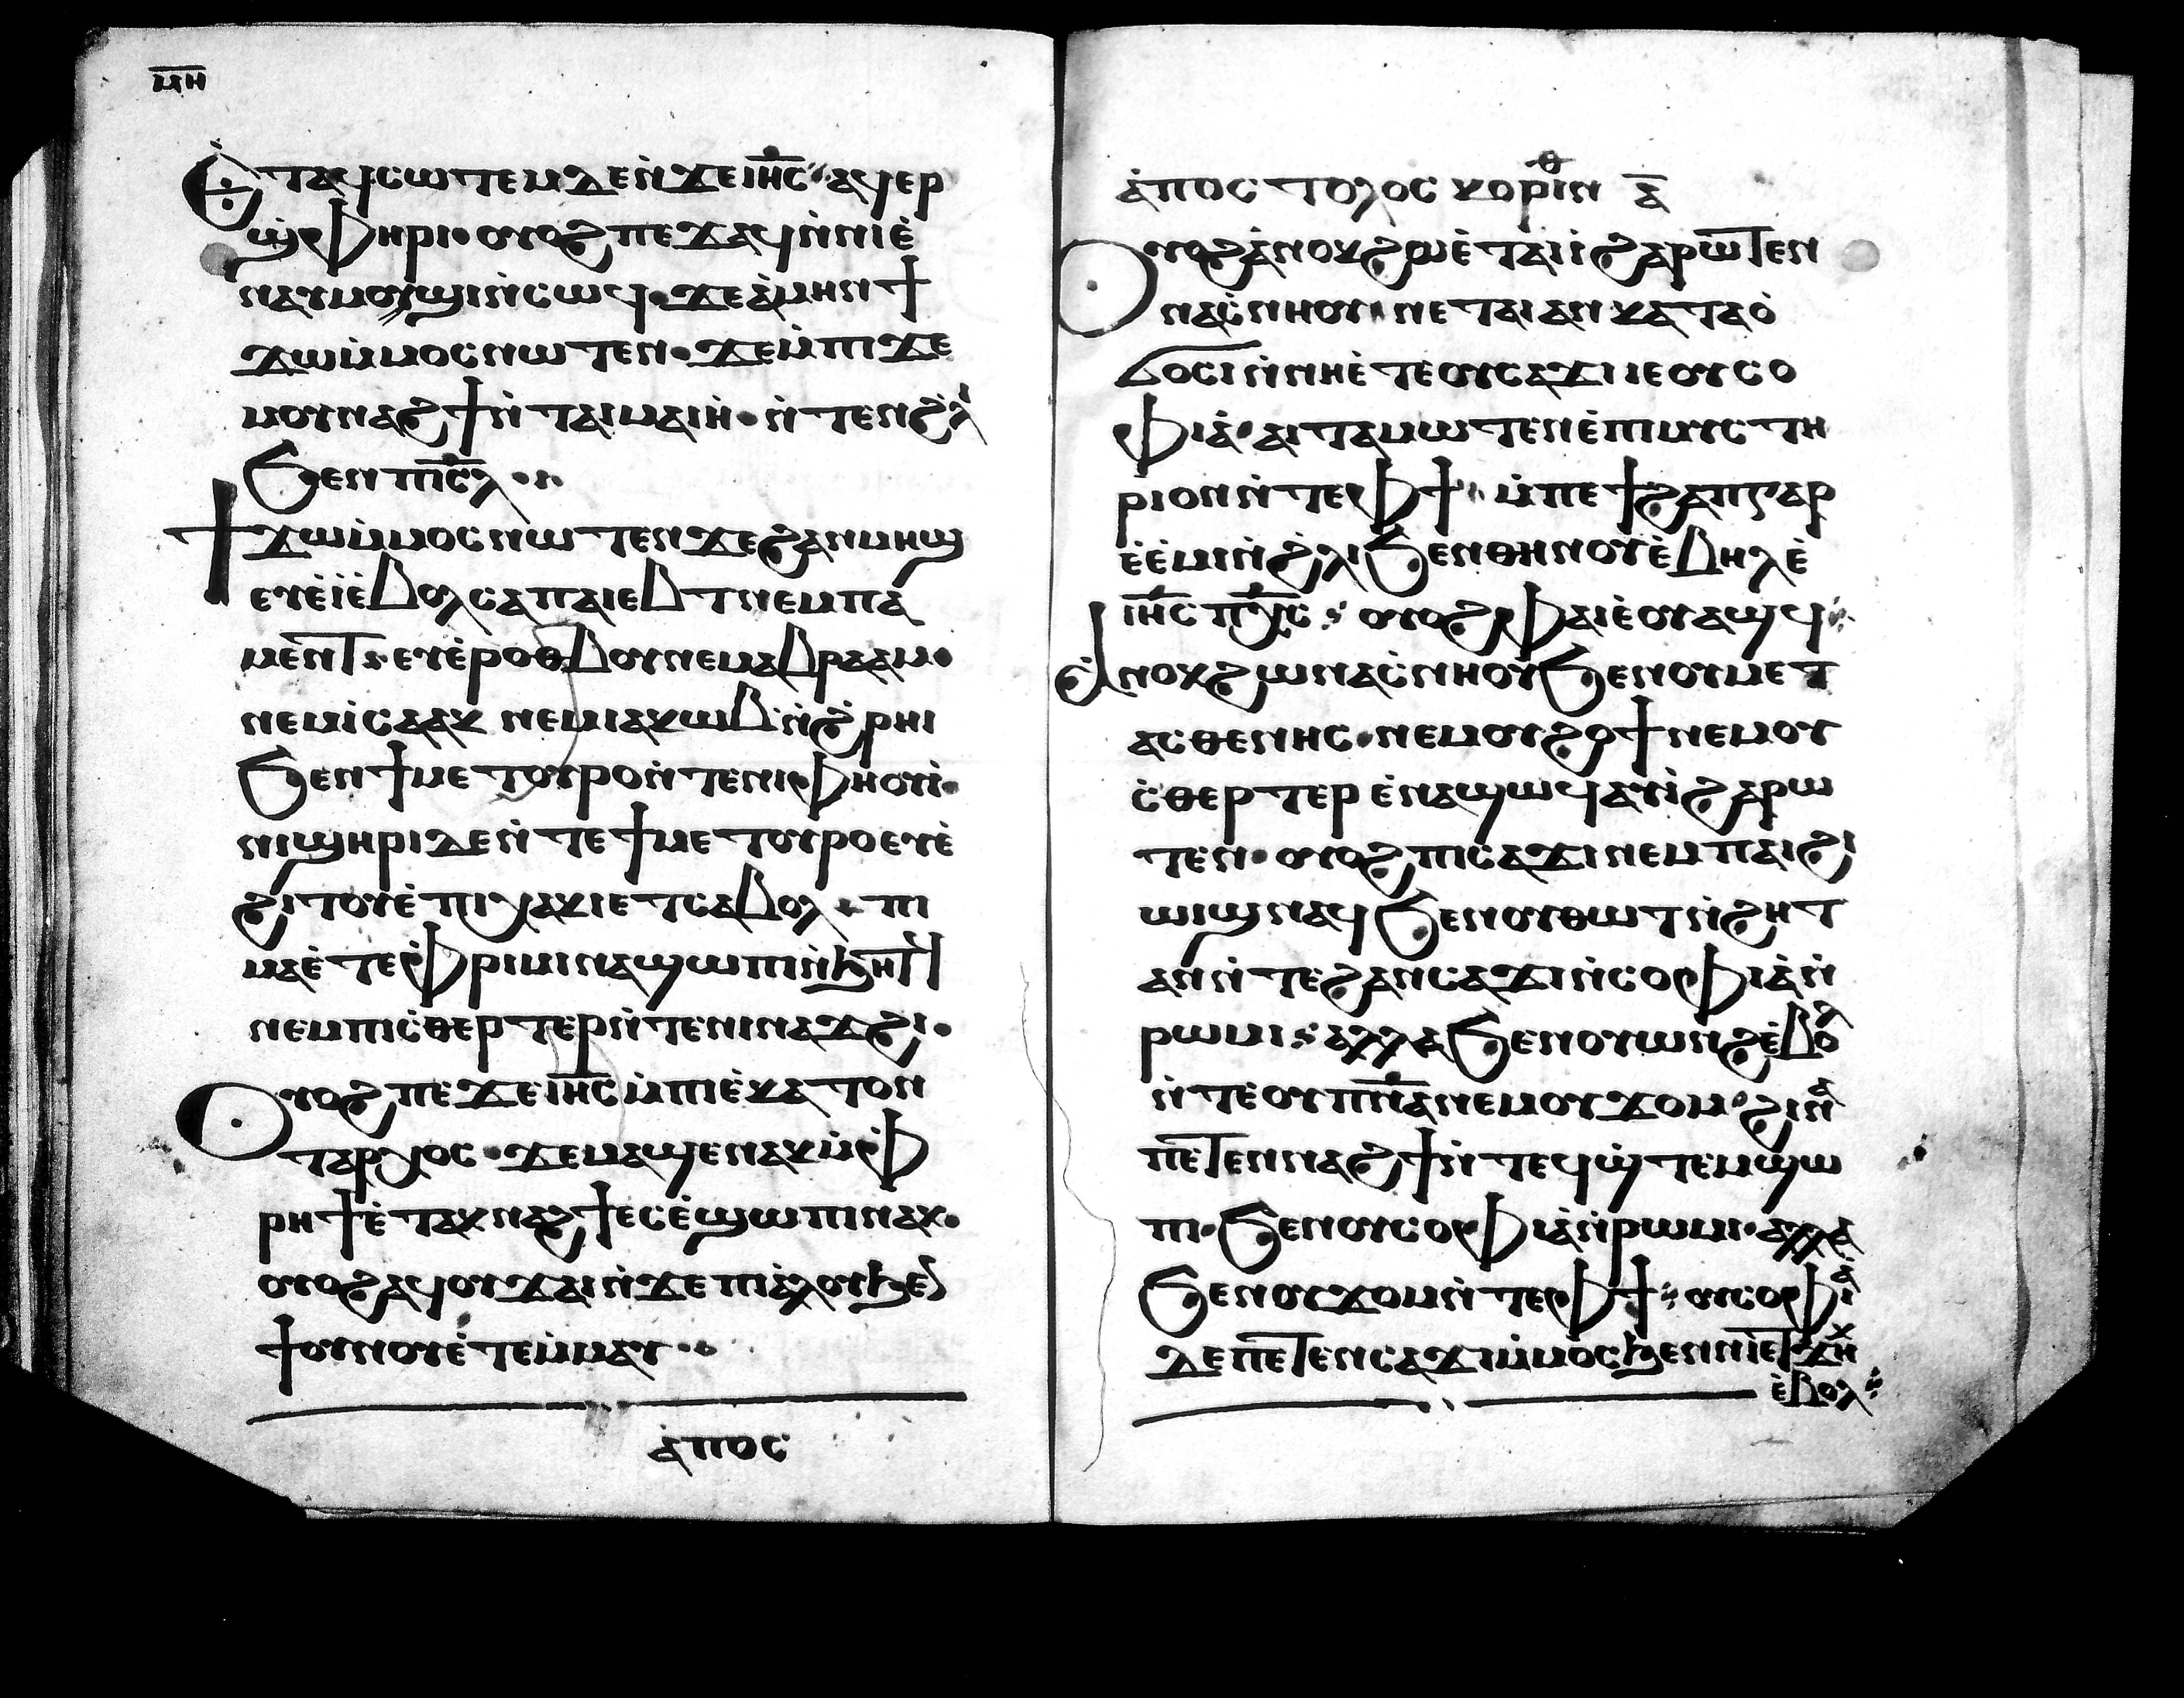 ⲙⲏ
Ⲉ̀ⲧⲁϥⲥⲱⲧⲉⲙ ⲇⲉ ⲛ̀ϫⲉ ⲓⲏ̅ⲥ ⲁϥⲉⲣ
ϣ̀ⲫⲏⲣⲓ· ⲟⲩⲟϩ ⲡⲉϫⲁϥ ⲛ̀ⲛⲓⲉ̀
ⲛⲁⲩⲙⲟϣⲓ ⲛ̀ⲥⲱϥ· ϫⲉ ⲁ̀ⲙⲏⲛ ϯ
ϫⲱ ⲙ̀ⲙⲟⲥ ⲛⲱⲧⲉⲛ· ϫⲉ ⲙ̀ⲡⲓϫⲉ
ⲙⲟⲩⲛⲁϩϯ ⲛ̀ⲧⲁⲓⲙⲁⲓⲏ̀· ⲛ̀ⲧⲉⲛ ϩ̀ⲗ̀
ϧⲉⲛ ⲡⲓⲥ̅ⲗ
Ϯϫⲱ ⲙ̀ⲙⲟⲥ ⲛⲱⲧⲉⲛ ϫⲉ ϩⲁⲛⲙⲏϣ
ⲉⲩⲉ̀ⲓ̀ ⲉ̀ⲃⲟⲗ ⲥⲁ ⲡⲁⲓⲉⲃⲧ ⲛⲉⲙ ⲡⲁ
ⲙⲉⲛⲧ ⲉⲩⲉ̀ⲣⲟⲑⲃⲟⲩ ⲛⲉⲙ ⲁⲃⲣⲁⲁⲙ·
ⲛⲉⲙ ⲓ̀ⲥⲁⲁⲕ ⲛⲉⲙ ⲓⲁⲕⲱⲃ ⲛ̀ϩ̀ⲣⲏⲓ
ϧⲉⲛ ϯⲙⲉⲧⲟⲩⲣⲟ ⲛ̀ⲧⲉ ⲛⲓⲫⲏⲟⲩⲓ̀·
ⲛⲓϣⲏⲣⲓ ⲇⲉ ⲛ̀ⲧⲉ ϯⲙⲉⲧⲟⲩⲣⲟ ⲉⲩⲉ̀
ϩⲓⲧⲟⲩ ⲉ̀ⲡⲓⲭⲁⲕⲓ ⲉⲧⲥⲁⲃⲟⲗ· ⲡⲓ
ⲙⲁ ⲉ̀ⲧⲉ ⲫ̀ⲣⲓⲙⲓ ⲛⲁϣⲱⲡⲓ ⲛ̀ϧⲏⲧϥ
ⲛⲉⲙ ⲡⲓⲥ̀ⲑⲉⲣⲧⲉⲣ ⲛ̀ⲧⲉ ⲛⲓⲛⲁϫϩⲓ·
Ⲟⲩⲟϩ ⲡⲉϫⲉ ⲓⲏ̅ⲥ ⲙ̀ⲡⲓⲉ̀ⲕⲁⲧⲟⲛ
ⲧⲁⲣⲭⲟⲥ· ϫⲉ ⲙⲁϣⲉⲛⲁⲕ ⲙ̀ⲫ
ⲣⲏϯ ⲉ̀ⲧⲁⲕⲛⲁϩϯ ⲉⲥⲉ̀ϣⲱⲡⲓ ⲛⲁⲕ·
ⲟⲩⲟϩ ⲁϥⲟⲩϫⲁⲓ ⲛ̀ϫⲉ ⲡⲓⲁ̀ⲗⲟⲩ ϧⲉⲛ
ϯⲟⲩⲛⲟⲩ ⲉ̀ⲧⲉⲙ̀ⲙⲁⲩ··
ⲁ̀ⲡⲟⲥ
ⲁ̀ⲡⲟⲥⲧⲟⲗⲟⲥ ⲕⲟⲣⲓⲛⲑ ⲁ̅
Ⲟⲩⲟϩ ⲁ̀ⲛⲟⲕ ϩⲱ ⲉ̀ⲧⲁⲓⲓ̀ ϩⲁⲣⲱⲧⲉⲛ
ⲛⲁⲥ̀ⲛⲏⲟⲩ· ⲛⲉⲧⲁⲓ ⲁⲛ ⲕⲁⲧⲁ ⲟ̀
ϭⲓⲥⲓ ⲛ̀ⲛⲏⲉ̀ⲧⲉ ⲟⲩⲥⲁϫⲓ ⲓⲉ ⲟⲩⲥⲟ
ⲫⲓⲁ̀· ⲁⲓⲧⲁⲙⲱⲧⲉⲛ ⲉ̀ⲡⲓⲙⲩⲥⲧⲏ
ⲣⲓⲟⲛ ⲛ̀ⲧⲉ ⲫϯ ⲙ̀ⲡⲉϯϩⲁⲡ ⲅⲁⲣ
ⲉ̀ⲉ̀ⲙⲓ ⲛ̀ϩ̀ⲗⲓ ϧⲉⲛ ⲑⲏⲛⲟⲩ ⲉ̀ⲃⲏⲗ ⲉ̀
ⲓⲏ̅ⲥ ⲡⲭ̅ⲥ ⲟⲩⲟϩ ⲫⲁⲓ ⲉ̀ⲟⲩⲁϣϥ
Ⲁ̀ⲛⲟⲕ ϩⲱ ⲛⲁⲥ̀ⲛⲏⲟⲩ ϧⲉⲛ ⲟⲩⲙⲉⲧ
ⲁⲥⲑⲉⲛⲏⲥ· ⲛⲉⲙ ⲟⲩϩⲟϯ ⲛⲉⲙ ⲟⲩ
ⲥ̀ⲑⲉⲣⲧⲉⲣ ⲉ̀ⲛⲁϣⲱϥ ⲁⲓⲓ̀ ϩⲁⲣⲱ
ⲧⲉⲛ· ⲟⲩⲟϩ ⲡⲓⲥⲁϫⲓ ⲛⲉⲙ ⲡⲁϩⲓ
ⲱⲓϣ ⲛⲁϥ ϧⲉⲛ ⲟⲩⲑⲱⲧ ⲛ̀ϩⲏⲧ
ⲁⲛ ⲛ̀ⲧⲉ ϩⲁⲛⲥⲁϫⲓ ⲛ̀ⲥⲟⲫⲓⲁ̀ ⲛ̀
ⲣⲱⲙⲓ ⲁⲗⲗⲁ ϧⲉⲛ ⲟⲩⲱⲛϩ ⲉ̀ⲃⲟⲗ
ⲛ̀ⲧⲉ ⲟⲩⲡⲛ̅ⲁ ⲛⲉⲙ ⲟⲩϫⲟⲙ· ϩⲓⲛⲁ̀
ⲡⲉⲧⲉⲛⲛⲁϩϯ ⲛ̀ⲧⲉϥϣ̀ⲧⲉⲙϣⲱ
ⲡⲓ· ϧⲉⲛ ⲟⲩⲥⲟⲫⲓⲁ̀ ⲛ̀ⲣⲱⲙⲓ· ⲁⲗⲗⲁ
ϧⲉⲛ ⲟⲩϫⲟⲙ ⲛ̀ⲧⲉ ⲫϯ ⲟⲩⲥⲟⲫⲓⲁ̀
ⲇⲉ ⲡⲉⲧⲉⲛⲥⲁϫⲓ ⲙ̀ⲙⲟⲥ ϧⲉⲛ ⲛⲓⲉⲧϫⲏⲕ
ⲉ̀ⲃⲟⲗ